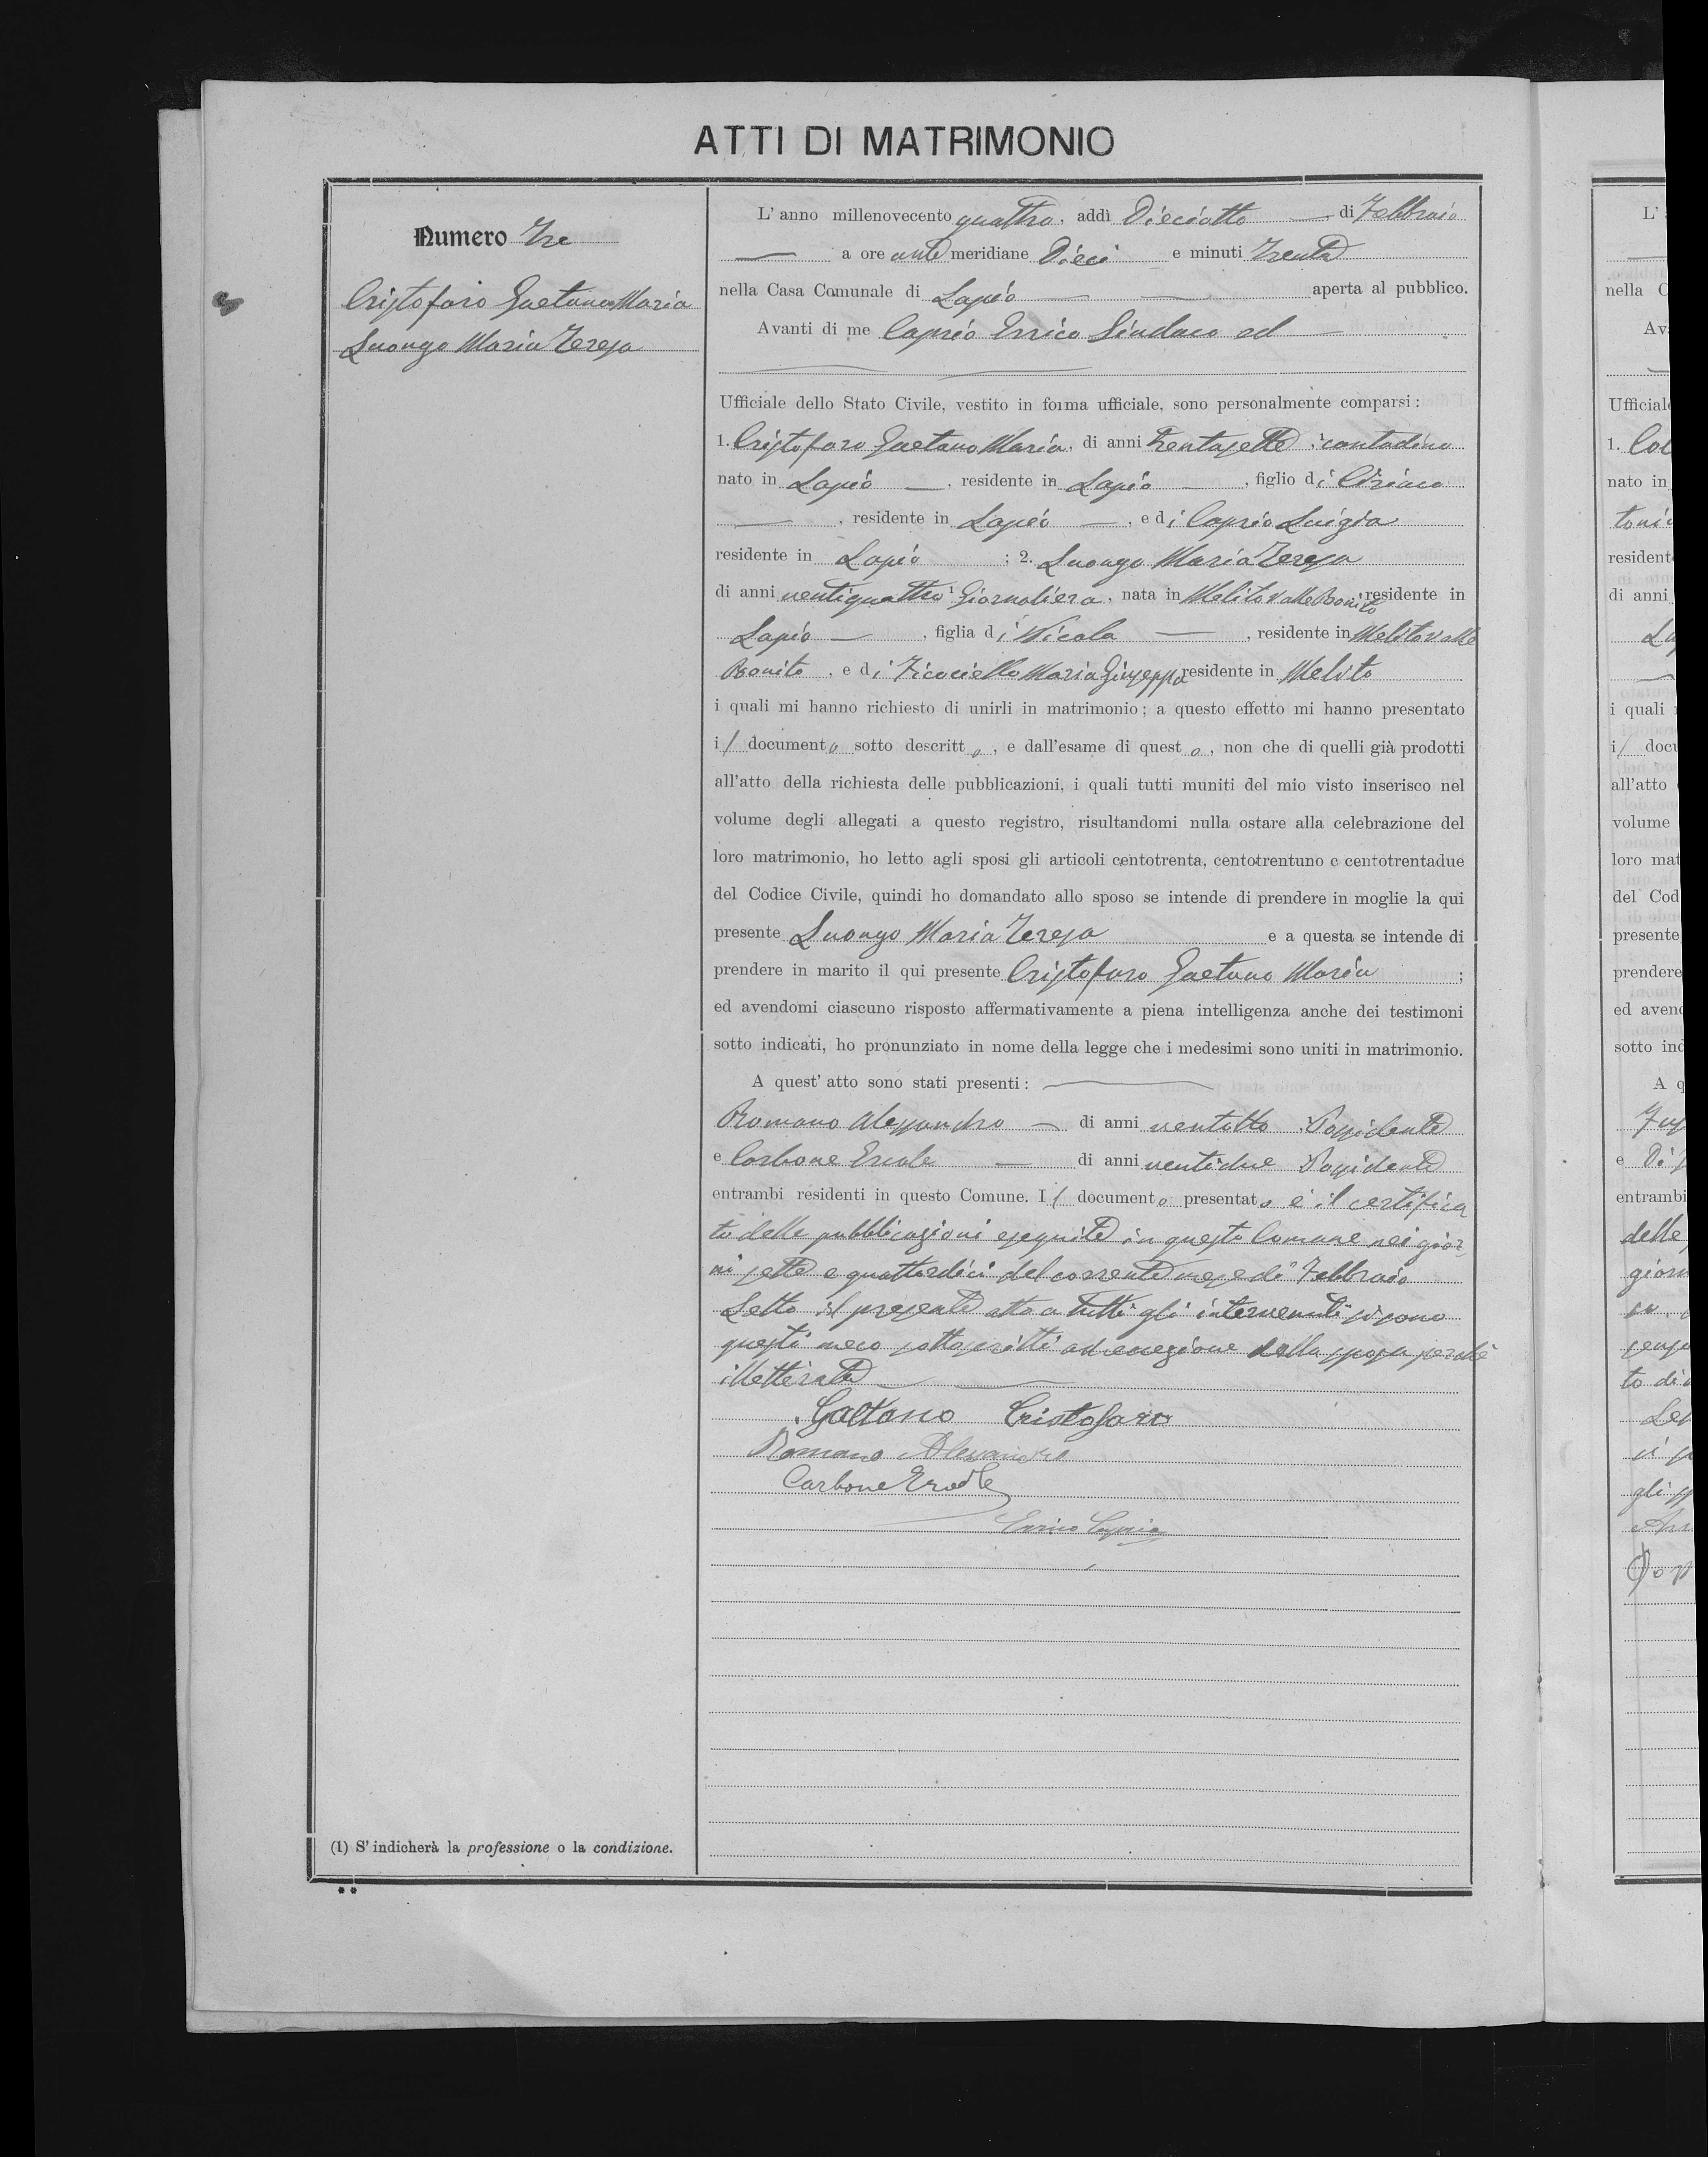 ATTI DI MATRIMONIO
Numero Tre
Cristofaro Gaetano Maria
Luongo Maria Teresa
L'anno millenovecento quattro, addì Dieciotto di Febbraio
a ore ante meridiane Dieci e minuti Trenta
nella Casa Comunale di Lapio aperta al pubblico.
Avanti di me Caprio Errico Sindaco ed
Ufficiale dello Stato Civile, vestito in forma ufficiale, sono personalmente comparsi:
1. Cristofaro Gaetano Maria, di anni trentasette, contadino
nato in Lapio, residente in Lapio, figlio di Ciriaco
, residente in Lapio, e di Caprio Luigia
residente in Lapio; 2. Luongo Maria Teresa
di anni ventiquattro, Giornaliera, nata in Melito Valle Bonito, residente in
Lapio, figlia di Nicola, residente in Melito Valle
Bonito, e di Ficociello Maria Giuseppa residente in Melito
i quali mi hanno richiesto di unirli in matrimonio; a questo effetto mi hanno presentato
il documento sotto descritto, e dall'esame di questo, non che di quelli già prodotti
all'atto della richiesta delle pubblicazioni, i quali tutti muniti del mio visto inserisco nel
volume degli allegati a questo registro, risultandomi nulla ostare alla celebrazione del
loro matrimonio, ho letto agli sposi gli articoli centotrenta, centotrentuno e centotrentadue
del Codice Civile, quindi ho domandato allo sposo se intende di prendere in moglie la qui
presente Luongo Maria Teresa e a questa se intende di
prendere in marito il qui presente Cristofaro Gaetano Maria;
ed avendomi ciascuno risposto affermativamente a piena intelligenza anche dei testimoni
sotto indicati, ho pronunziato in nome della legge che i medesimi sono uniti in matrimonio.
A quest' atto sono stati presenti:
Romano Alessandro di anni ventotto Possidente
e Carbone Ercole di anni ventidue Possidente
entrambi residenti in questo Comune. Il documento presentato è il certifica
to delle pubblicazioni eseguite in questo Comune nei gior-
ni sette e quattordici del corrente mese di Febbraio
Letto il presente atto a tutti gli intervenuti si sono
questi meco sottoscritti ad eccezione della sposa perchè
illetterata
Gaetano Cristofaro
Romano Alessandro
Carbone Ercole
Enrico Caprio
(1) S'indicherà la professione o la condizione.